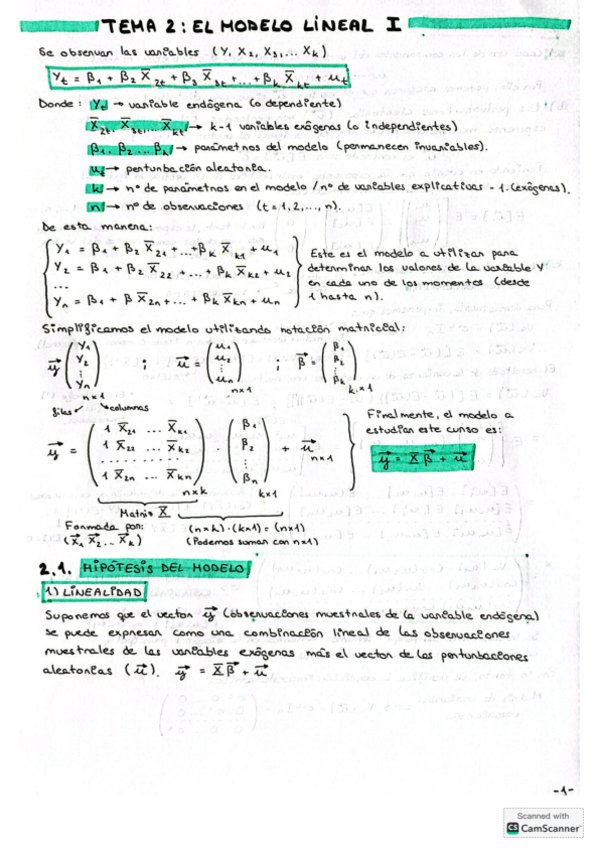 TEMA 2: EL MODELO LINEAL I
Se observan las variables (Y, X2, X3, ... Xk)
Yt = β1 + β2 X̅2t + β3 X̅3t + ... + βk X̅kt + ut
Donde: Yt → variable endógena (o dependiente)
X̅2t, X̅3t, ... X̅kt → k-1 variables exógenas (o independientes)
β1, β2 ... βk → parámetros del modelo (permanecen invariables).
ut → perturbación aleatoria.
k → nº de parámetros en el modelo / nº de variables explicativas - 1. (exógenas).
n → nº de observaciones (t = 1, 2, ..., n).
De esta manera:
Y1 = β1 + β2 X̅21 + ... + βk X̅k1 + u1
Y2 = β1 + β2 X̅22 + ... + βk X̅k2 + u2
...
Yn = β1 + β X̅2n + ... + βk X̅kn + un
Este es el modelo a utilizar para
determinar los valores de la variable Y
en cada uno de los momentos (desde
1 hasta n).
Simplificamos el modelo utilizando notación matricial:
y⃗ (y1 y2 ⋮ yn) n×1 ; u⃗ = (u1 u2 ⋮ un) n×1 ; β⃗ = (β1 β2 ⋮ βk) k×1
filas columnas
y⃗ = (1 X̅21 ... X̅k1
1 X̅22 ... X̅k2
..........
1 X̅2n ... X̅kn) n×k · (β1 β2 ⋮ βn) k×1 + u⃗ n×1
Finalmente, el modelo a
estudiar este curso es:
y⃗ = X̅ β⃗ + u⃗
Matriz X̅
Formada por:
(X⃗1 X⃗2 ... X⃗k)
(n×k)·(k×1) = (n×1)
(Podemos sumar con n×1)
2.1. HIPÓTESIS DEL MODELO
1) LINEALIDAD
Suponemos que el vector y⃗ (observaciones muestrales de la variable endógena)
se puede expresar como una combinación lineal de las observaciones
muestrales de las variables exógenas más el vector de las perturbaciones
aleatorias (u⃗). y⃗ = X̅ β⃗ + u⃗
-1-
Scanned with
CS CamScanner